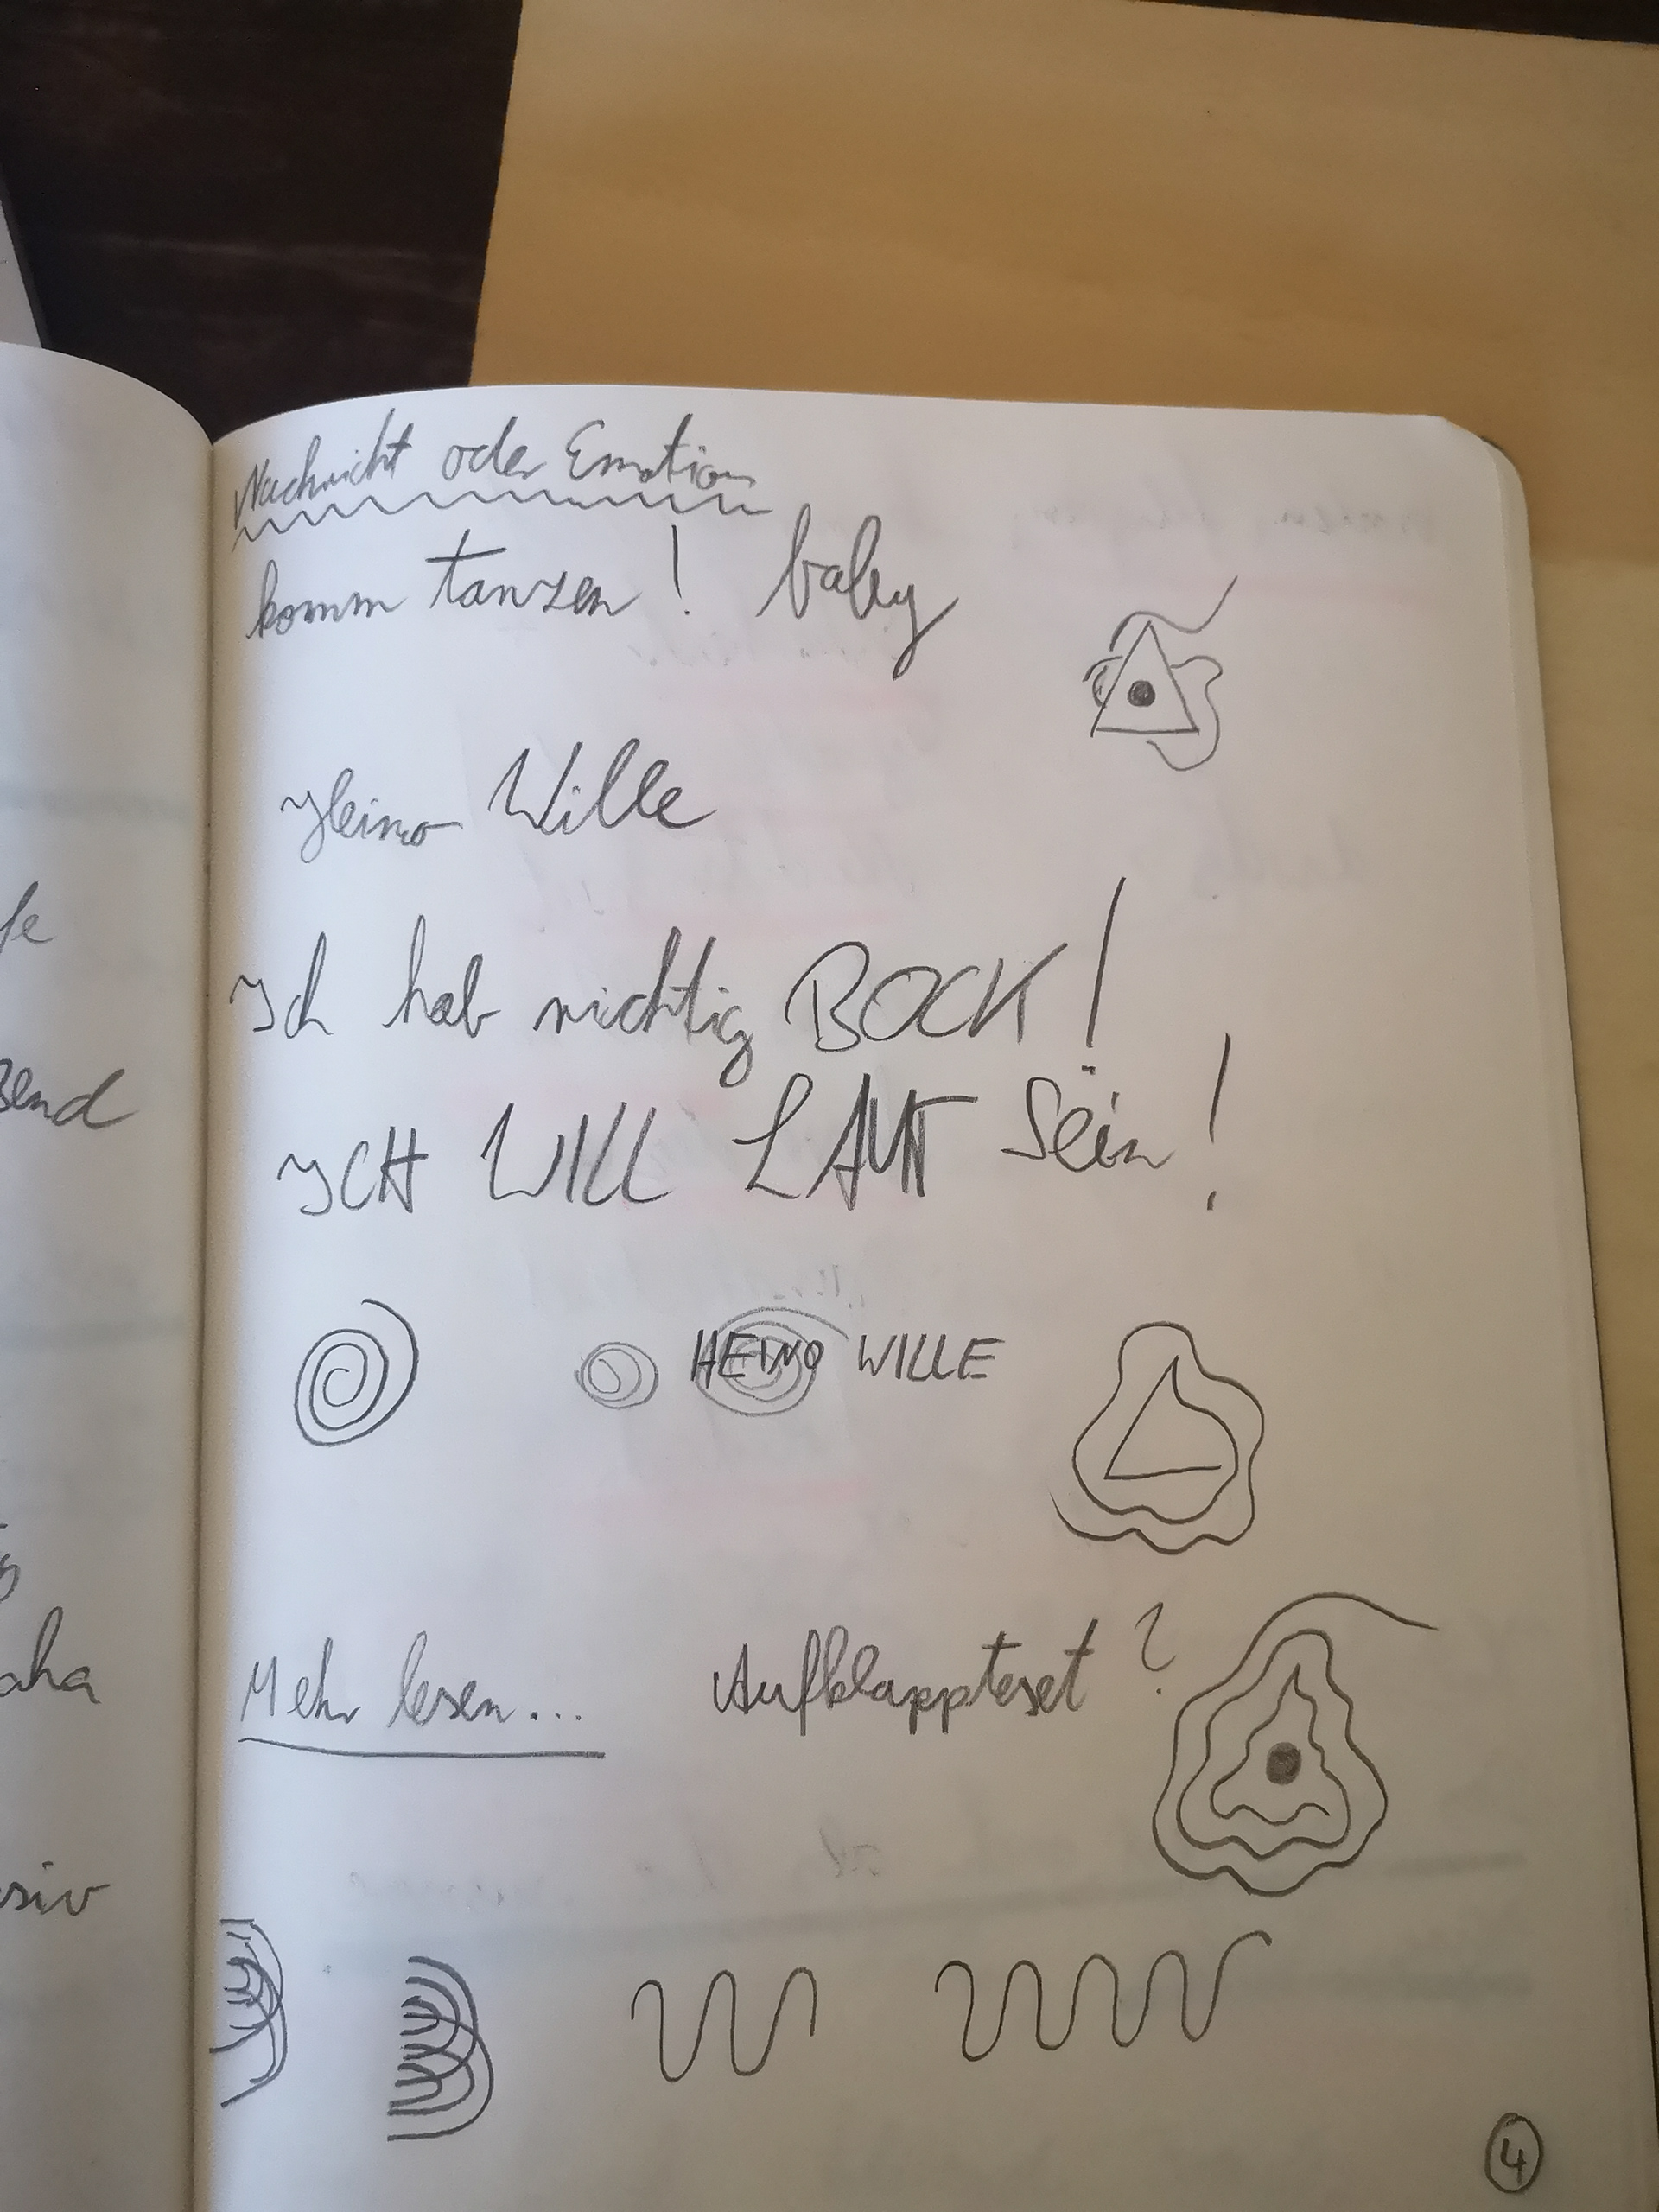 Nachricht oder Emotion
komm tanzen! baby
Heino Wille
Ich hab richtig BOCK!
ICH WILL LAUT sein!
HEINO WILLE
Mehr lesen... Aufklapptext?
4